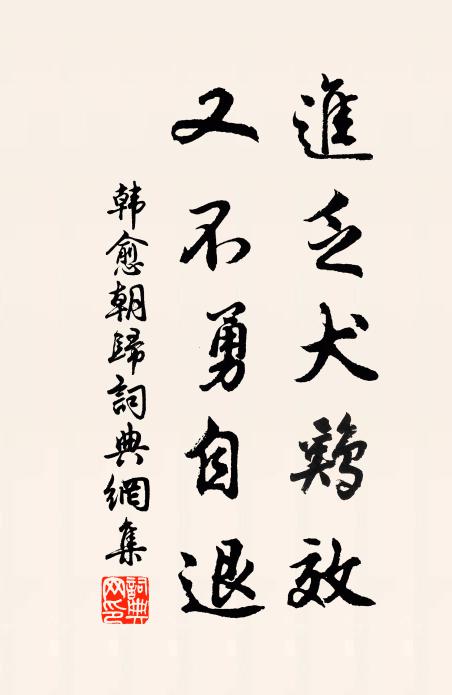 進乏犬鷄效
又不勇自退
韩愈朝歸詞典網集
詞典网印